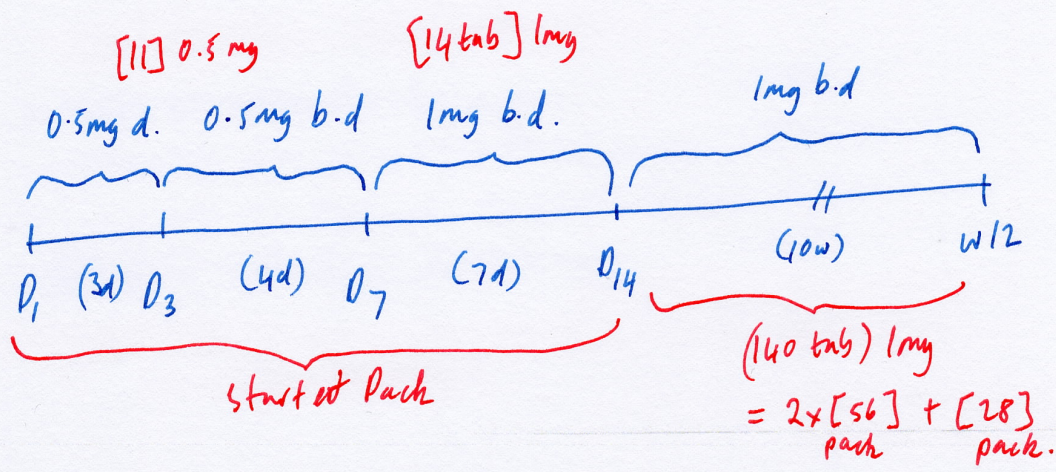 [11] 0.5mg [14 tab] 1mg
0.5mg d. 0.5mg b.d 1mg b.d. 1mg b.d
D1 (3d) D3 (4d) D7 (7d) D14 (10w) W12
starter Pack
(140 tab) 1mg
= 2x[56] + [28]
pack pack.